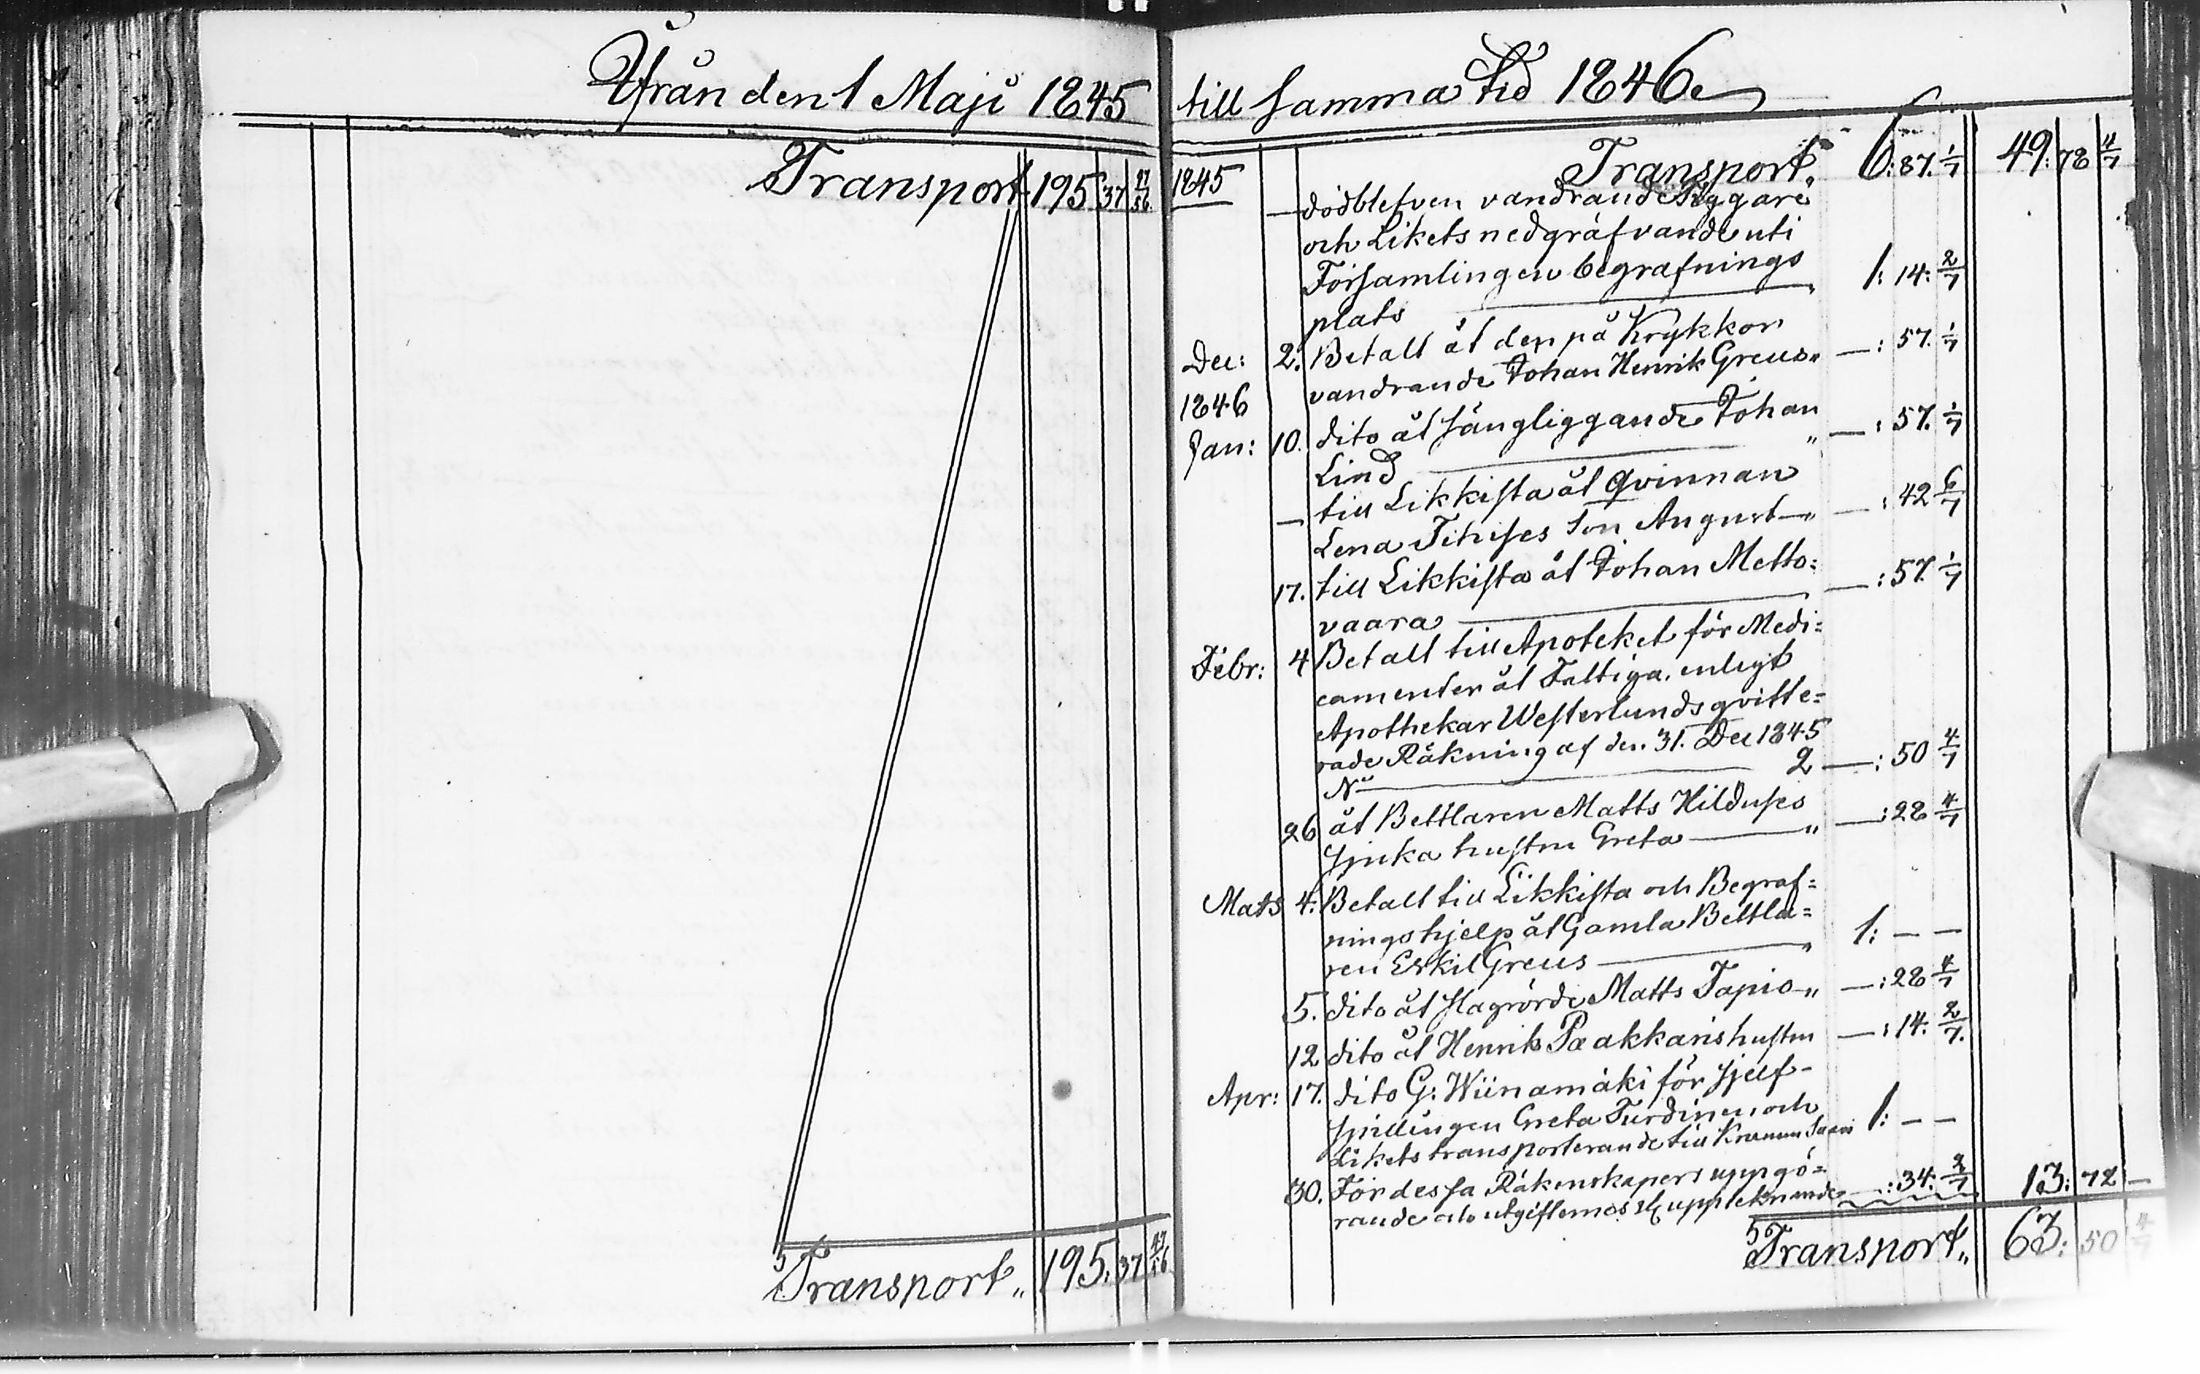 Från den 1 Maji 1845
Transport 195 37 47/56
Transport „ 195: 37 47/56
till samma tid 1846
1845 Transport „ 6: 87. 1/7 49: 78 4/7
— dödblefven vandrande Tiggare
och Likets nedgräfvande uti
Församlingen begrafnings
plats „ 1: 14: 2/7
Dec: 2. Betalt åt den på Krykkor
vandrande Johan Henrik Greus „ —: 57. 1/7
1846
Jan: 10. dito åt sängliggande Johan
Lind „ —: 57. 1/7
— till Likkista åt qvinnan
Lena Tihises Son August „ —: 42 6/7
17. till Likkista åt Johan Metto=
vaara —: 57. 1/7
Febr: 4 Betalt till Apoteket för Medi=
camenter åt Fattiga, enligt
Apothekar Westerlunds qvitte=
rade Räkning af den 31. Dec 1845
N° 2 —: 50 4/7
26 åt Bettlaren Matts Hildufes
sjuka hustru Greta „ —: 28 4/7
Mats 4. Betalt till Likkista och Begraf=
ningshjelp åt Gamla Bettla=
ren Eskil Greus „ 1: — —
5. dito åt slagrörde Matts Tapio „ —: 28 4/7
12 dito åt Henrik Paakkaris hustru —: 14: 2/7.
Apr: 17. dito G: Wiinamäki för sjelf-
spillingen Greta Turdinen och
Likets transporterande till 1: — —
30. För dessa Räkenskapers uppgö=
rande och utgifternes uppteknande —: 34: 2/7 13: 72 —
Transport „ 63: 50 4/7